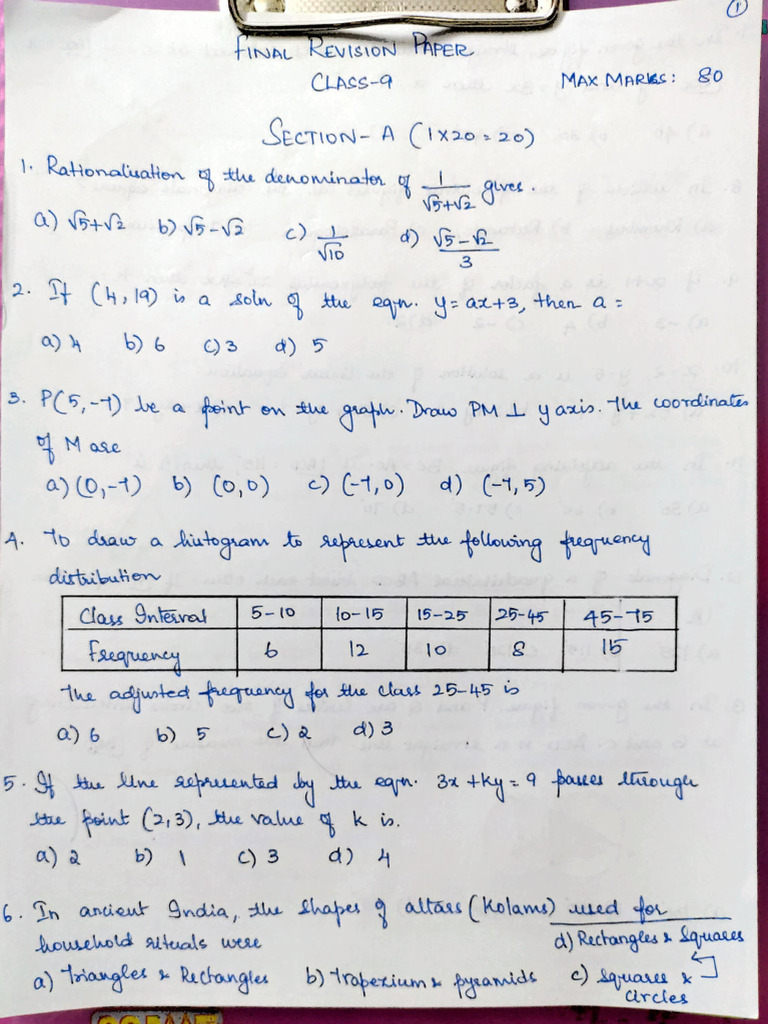 1
FINAL REVISION PAPER
CLASS-9 MAX MARKS: 80
SECTION-A (1×20=20)
1. Rationalisation of the denominator of 1/(√5+√2) gives.
a) √5+√2 b) √5-√2 c) 1/√10 d) (√5-√2)/3
2. If (4,19) is a soln of the eqn. y=ax+3, then a =
a) 4 b) 6 c) 3 d) 5
3. P(5,-7) be a point on the graph. Draw PM ⊥ y axis. The coordinates
of M are
a) (0,-7) b) (0,0) c) (-7,0) d) (-7,5)
4. To draw a histogram to represent the following frequency
distribution
Class Interval 5-10 10-15 15-25 25-45 45-75
Frequency 6 12 10 8 15
The adjusted frequency for the class 25-45 is
a) 6 b) 5 c) 2 d) 3
5. If the line represented by the eqn. 3x+ky=9 passes through
the point (2,3), the value of k is.
a) 2 b) 1 c) 3 d) 4
6. In ancient India, the shapes of altars (Kolams) used for
household rituals were d) Rectangles & Squares
a) Triangles & Rectangles b) Trapezium & pyramids c) Squares &
circles